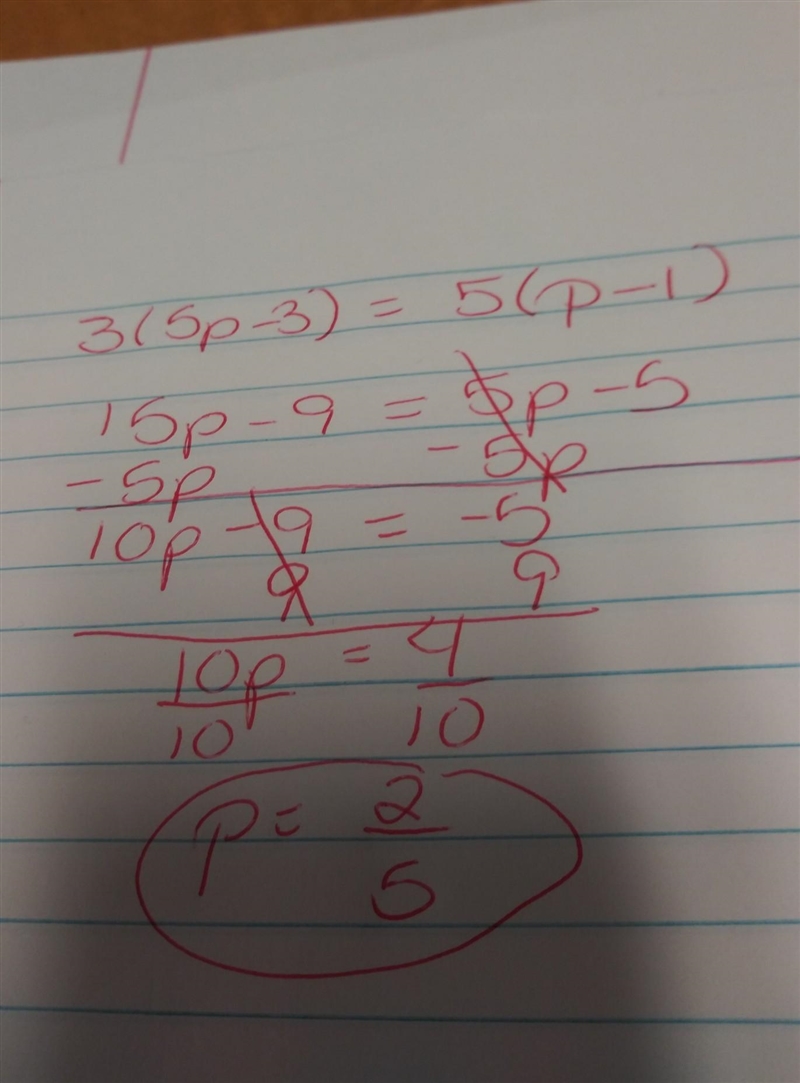 3(5p-3) = 5(p-1)
15p - 9 = 5p - 5
-5p - 5p
10p - 9 = -5
9 9
10p = 4
10 10
p = 2
5